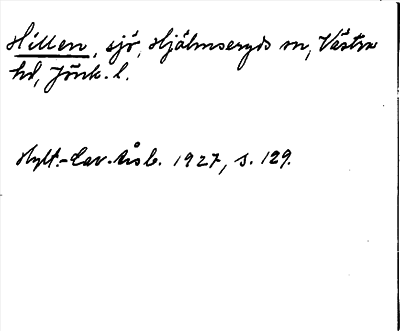 Hillen, sjö, Hjälmseryds sn, Västra
hd, Jönk. l.
Hylt.-Cav. Årsb. 1927, s. 129.